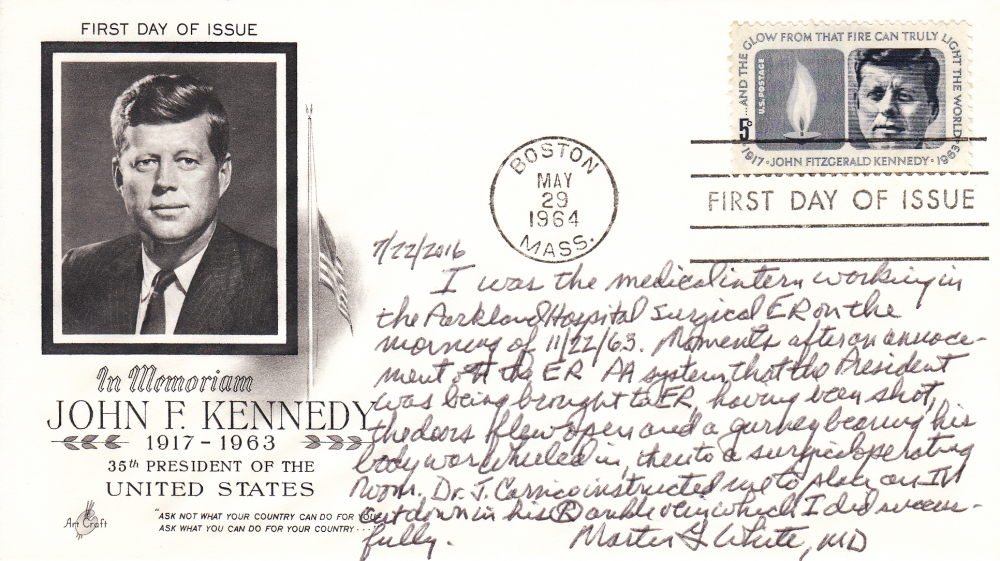 FIRST DAY OF ISSUE
In Memoriam
JOHN F. KENNEDY
1917 - 1963
35th PRESIDENT OF THE
UNITED STATES
"ASK NOT WHAT YOUR COUNTRY CAN DO FOR YOU
ASK WHAT YOU CAN DO FOR YOUR COUNTRY - - -"
Art Craft
...AND THE GLOW FROM THAT FIRE CAN TRULY LIGHT THE WORLD
U.S. POSTAGE
5c
1917·JOHN FITZGERALD KENNEDY·1963
BOSTON
MAY
29
1964
MASS.
FIRST DAY OF ISSUE
7/22/2016
I was the medical intern working in
the Parkland Hospital Surgical ER on the
morning of 11/22/63. Moments after an annoce-
ment on the ER PA system that the President
was being brought to ER, having been shot,
the doors flew open and a gurney bearing his
body was wheeled in, then to a surgical operating
room. Dr. J. Carrico instructed me to place an IV
cutdown in his R ankle vein which I did success-
fully. Martin G. White, MD